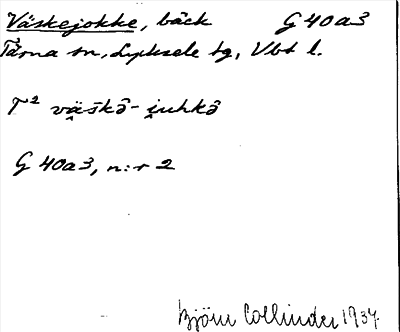 Väskejokke, bäck G 40a3
Tärna sn, Lycksele tg, Vbt l.
T² väskə̂-i̯uhkə̂
G 40a3, n:r 2
Björn Collinder 1934.